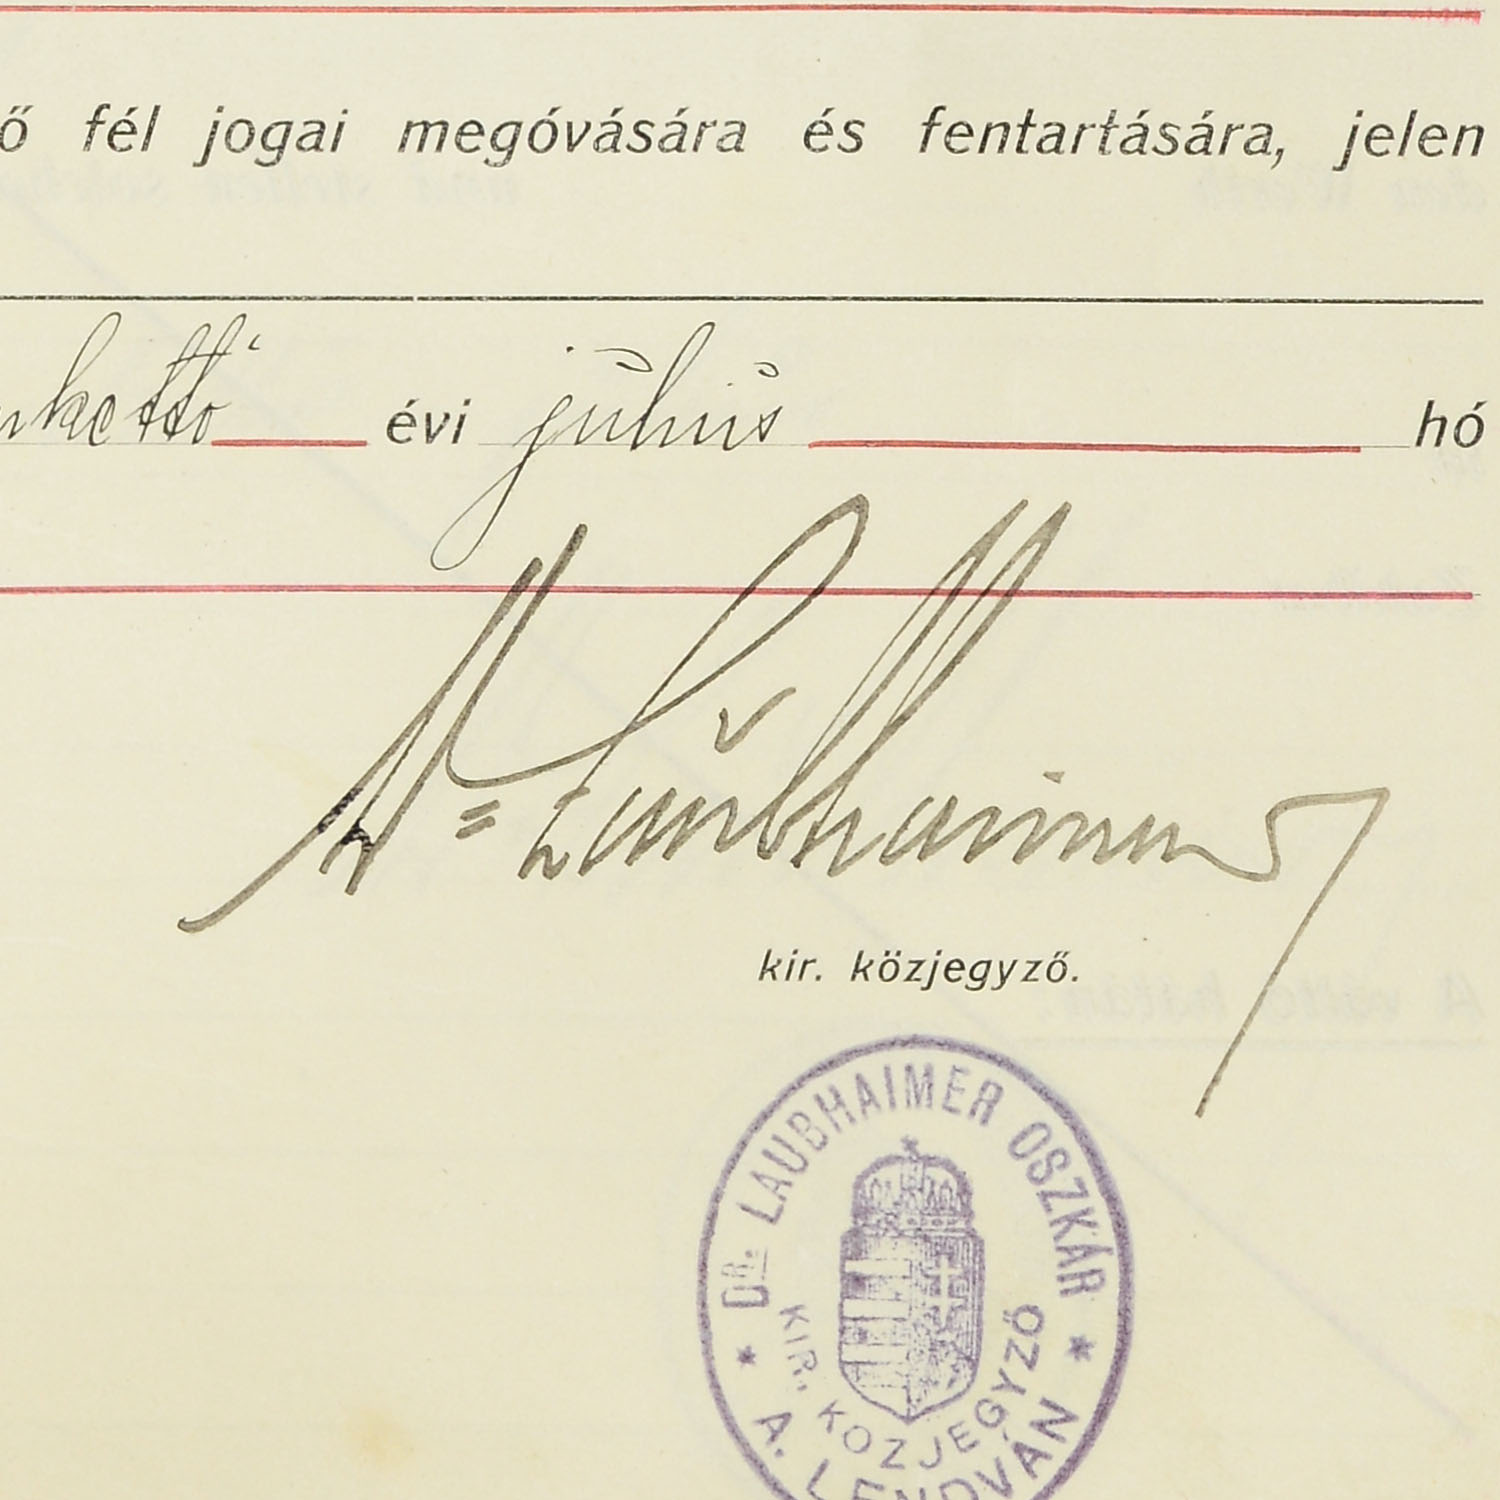 ő fél jogai megóvására és fentartására, jelen
nkettő évi július hó
Dr Laubhaimer
kir. közjegyző.
DR. LAUBHAIMER OSZKÁR
KIR. KÖZJEGYZŐ
A. LENDVÁN